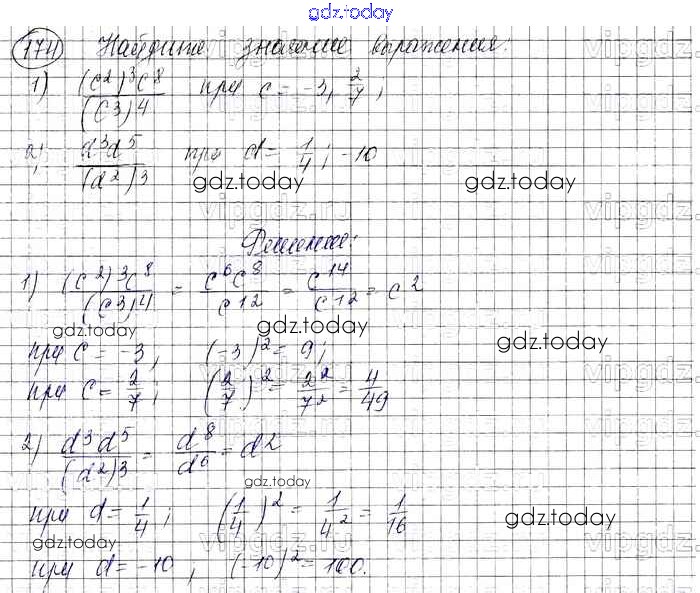 gdz.today
174 Найдите значение выражения:
1) (c²)³c⁸/(c³)⁴ при c = -3, 2/7;
2) d³d⁵/(d²)³ при d = 1/4; -10
gdz.today gdz.today
Решение:
1) (c²)³c⁸/(c³)⁴ = c⁶c⁸/c¹² = c¹⁴/c¹² = c²
gdz.today gdz.today gdz.today
при c = -3, (-3)² = 9;
при c = 2/7; (2/7)² = 2²/7² = 4/49
2) d³d⁵/(d²)³ = d⁸/d⁶ = d²
gdz.today
при d = 1/4; (1/4)² = 1/4² = 1/16
gdz.today gdz.today
при d = -10, (-10)² = 100.